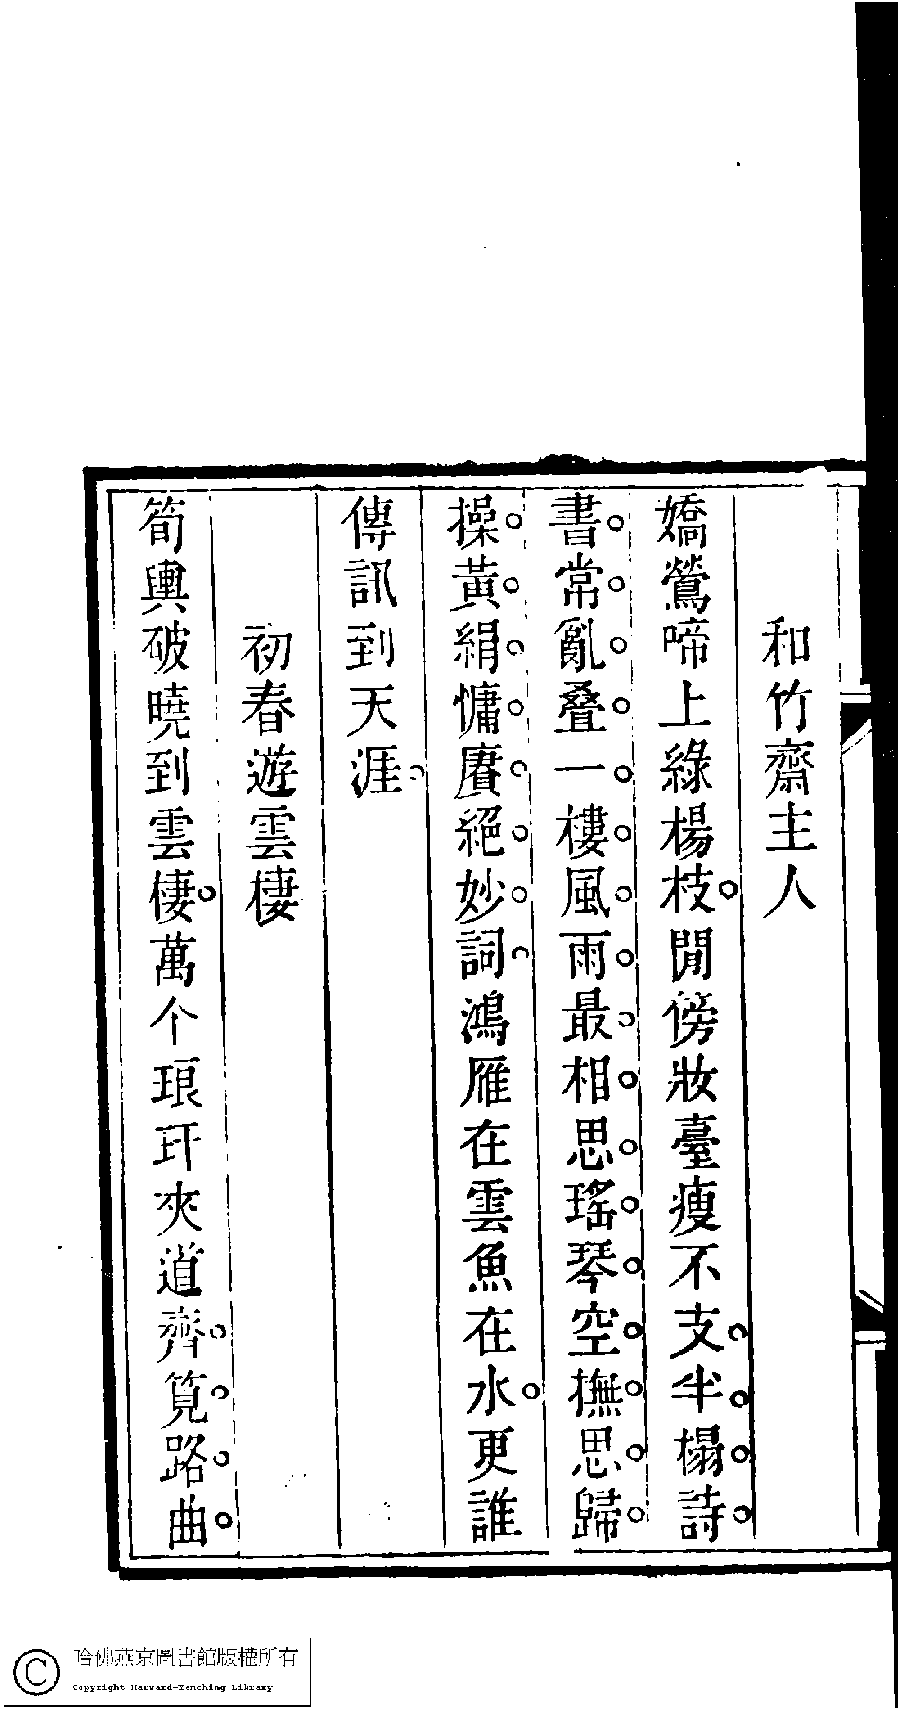 和竹齋主人
嬌鶯啼上綠楊枝閒傍妝臺瘦不支半榻詩
書常亂叠一樓風雨最相思瑤琴空撫思歸
操黃絹慵賡絕妙詞鴻雁在雲魚在水更誰
傳訊到天涯
初春遊雲棲
筍輿破曉到雲棲萬个琅玕夾道齊筧路曲
哈佛燕京圖書館版權所有
Copyright Harvard-Yenching Library